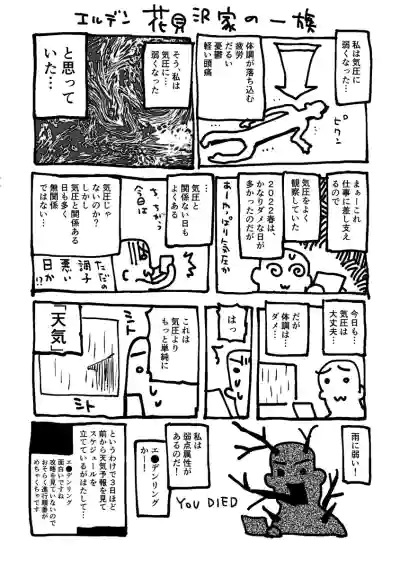 エルデン 花見沢家の一族
私は気圧に
弱くなった…
ピクン
体調が落ち込む
だるい
疲労
憂鬱
軽い頭痛
そう、私は
気圧に
弱くなった
と思って
いた…
まぁーこれ
仕事に差し支え
るので
気圧をよく
観察していた
2022春は、
かなりダメな日が
多かったのだが
あーやっぱり気圧か
…
気圧と
関係ない日も
よくある
ちっちがう
今日は
気圧じゃ
ないのか?
しかし
気圧と関係ある
日も多く
無関係
ではない…
ただの
調子
悪い
日か!?
今日も…
気圧は
大丈夫…
だが
体調は…
ダメ…
はっ
これは
気圧より
もっと単純に
シト
シト
「天気」
雨に弱い!
YOU DIED
私は
弱点属性が
あるのだ!
エ●デンリング
かー!
というわけで3日ほど
前から天気予報を見て
スケジュールを
立てているがはたして…
エ●デンリング
面白いですね
攻略を見ていないので
おそらく進行順番が
めちゃくちゃです